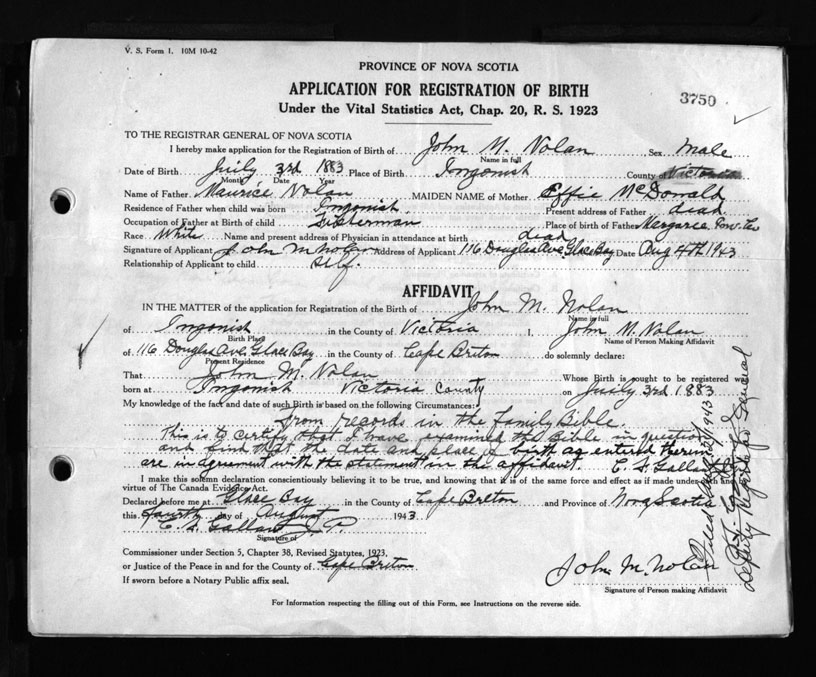 V. S. Form 1. 10M 10-42
PROVINCE OF NOVA SCOTIA
APPLICATION FOR REGISTRATION OF BIRTH
3750
Under the Vital Statistics Act, Chap. 20, R. S. 1923
TO THE REGISTRAR GENERAL OF NOVA SCOTIA
I hereby make application for the Registration of Birth of John M. Nolan Sex Male
Name in full
Date of Birth Juily 3rd 1883 Place of Birth Ingonish County of Victoria
Month Date Year
Name of Father Maurice Nolan MAIDEN NAME of Mother Effie McDonald
Residence of Father when child was born Ingonish Present address of Father dead
Occupation of Father at Birth of child Fisherman Place of birth of Father Margaree
Race White Name and present address of Physician in attendance at birth dead
Signature of Applicant John M Nolan Address of Applicant 116 Douglas Ave Glace Bay Date Aug 4th 1943
Relationship of Applicant to child self.
AFFIDAVIT
IN THE MATTER of the application for Registration of the Birth of John M. Nolan
Name in full
of Ingonish in the County of Victoria I, John M. Nolan
Birth Place Name of Person Making Affidavit
of 116 Douglas Ave. Glace Bay in the County of Cape Breton do solemnly declare:
Present Residence
That John M. Nolan Whose Birth is sought to be registered was
born at Ingonish Victoria County on Juily 3rd 1883
My knowledge of the fact and date of such Birth is based on the following Circumstances:
from records in the family Bible.
This is to certify that I have examined the Bible in question
and find that the date and place of birth as entered therein
are in agreement with the statement in the affidavit. E. S. Gallant
I make this solemn declaration consciensiously believing it to be true, and knowing that it is of the same force and effect as if made under oath and by
virtue of The Canada Evidence Act.
Declared before me at Glace Bay in the County of Cape Breton and Province of Nova Scotia
this fourth day of August 1943
E. S. Gallant J. P.
Signature of
Commissioner under Section 5, Chapter 38, Revised Statutes, 1923,
or Justice of the Peace in and for the County of Cape Breton
If sworn before a Notary Public affix seal.
John M. Nolan
Signature of Person making Affidavit
For Information respecting the filling out of this Form, see Instructions on the reverse side.
Deputy Registrar General